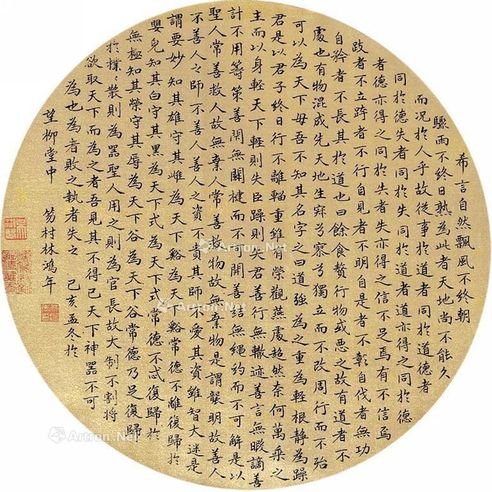 希言自然飄風不終朝
驟雨不終日孰為此者天地尚不能久
而況於人乎故從事於道者同於道德者
同於德失者同於失同於道者道亦得之同於德
者德亦得之同於失者失亦得之信不足焉有不信焉
跂者不立跨者不行自見者不明自是者不彰自伐者無功
自矜者不長其於道也曰餘食贅行物或惡之故有道者不
處也有物混成先天地生寂兮寥兮獨立而不改周行而不殆
可以為天下母吾不知其名字之曰道強為之重為輕根靜為躁
君是以君子終日行不離輜重雖有榮觀燕處超然奈何萬乘之
主而以身輕天下輕則失臣躁則失君善行無轍迹善言無瑕謫善
計不用籌策善閉無關楗而不可開善結無繩約而不可解是以
聖人常善救人故無棄人常善救物故無棄物是謂襲明故善人
不善人之師不善人善人之資不貴其師不愛其資雖智大迷是
謂要妙知其雄守其雌為天下谿為天下谿常德不離復歸於
嬰兒知其白守其黑為天下式為天下式常德不忒復歸於
無極知其榮守其辱為天下谷為天下谷常德乃足復歸
於樸樸散則為器聖人用之則為官長故大制不割將
欲取天下而為之者吾見其不得已天下神器不可
為也為者敗之執者失之 己亥孟冬於
望柳堂中 笏村林鴻年
Artron.Net